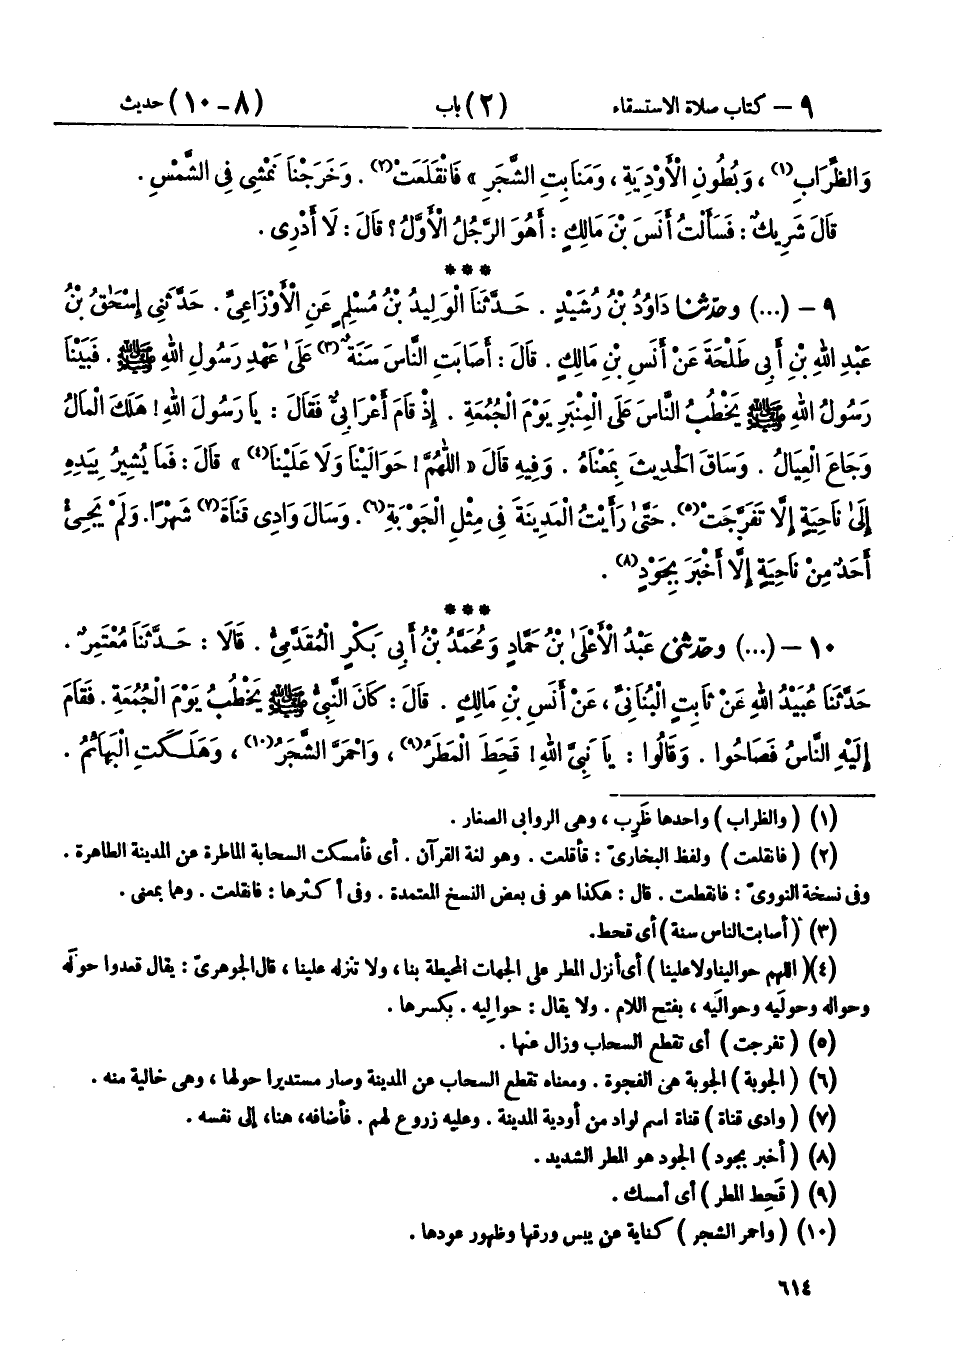 ٩ – كتاب صلاة الاستسقاء (٢) باب (٨ – ١٠) حديث
وَالظِّرَابِ(١) ، وَبُطُونِ الْأَوْدِيَةِ ، وَمَنَابِتِ الشَّجَرِ » فَانْقَلَعَتْ(٢) . وَخَرَجْنَا نَمْشِى فِى الشَّمْسِ .
قَالَ شَرِيكٌ : فَسَأَلْتُ أَنَسَ بْنَ مَالِكٍ : أَهُوَ الرَّجُلُ الْأَوَّلُ ؟ قَالَ : لَا أَدْرِى .
***
٩ – (...) وحَدَّثَنَا دَاوُدُ بْنُ رُشَيْدٍ . حَدَّثَنَا الْوَلِيدُ بْنُ مُسْلِمٍ عَنِ الْأَوْزَاعِىِّ . حَدَّثَنِى إِسْحَٰقُ بْنُ
عَبْدِ اللهِ بْنِ أَبِى طَلْحَةَ عَنْ أَنَسِ بْنِ مَالِكٍ . قَالَ : أَصَابَتِ النَّاسَ سَنَةٌ(٣) عَلَىٰ عَهْدِ رَسُولِ اللهِ ﷺ . فَبَيْنَا
رَسُولُ اللهِ ﷺ يَخْطُبُ النَّاسَ عَلَى الْمِنْبَرِ يَوْمَ الْجُمُعَةِ . إِذْ قَامَ أَعْرَابِىٌّ فَقَالَ : يَا رَسُولَ اللهِ ! هَلَكَ الْمَالُ
وَجَاعَ الْعِيَالُ . وَسَاقَ الْحَدِيثَ بِمَعْنَاهُ . وَفِيهِ قَالَ « اللَّهُمَّ ! حَوَالَيْنَا وَلَا عَلَيْنَا(٤) » قَالَ : فَمَا يُشِيرُ بِيَدِهِ
إِلَىٰ نَاحِيَةٍ إِلَّا تَفَرَّجَتْ(٥). حَتَّىٰ رَأَيْتُ الْمَدِينَةَ فِى مِثْلِ الْجَوْبَةِ(٦). وَسَالَ وَادِى قَنَاةَ(٧) شَهْرًا. وَلَمْ يَجِىْءْ
أَحَدٌ مِنْ نَاحِيَةٍ إِلَّا أَخْبَرَ بِجَوْدٍ(٨) .
***
١٠ – (...) وحَدَّثَنِى عَبْدُ الْأَعْلَىٰ بْنُ حَمَّادٍ وَمُحَمَّدُ بْنُ أَبِى بَكْرٍ الْمُقَدَّمِىُّ . قَالَا : حَدَّثَنَا مُعْتَمِرٌ .
حَدَّثَنَا عُبَيْدُ اللهِ عَنْ ثَابِتٍ الْبُنَانِىِّ ، عَنْ أَنَسِ بْنِ مَالِكٍ . قَالَ : كَانَ النَّبِىُّ ﷺ يَخْطُبُ يَوْمَ الْجُمُعَةِ . فَقَامَ
إِلَيْهِ النَّاسُ فَصَاحُوا . وَقَالُوا : يَا نَبِىَّ اللهِ ! قَحَطَ الْمَطَرُ(٩) ، وَاحْمَرَّ الشَّجَرُ(١٠) ، وَهَلَكَتِ الْبَهَائِمُ .
(١) ( والظراب ) واحدها ظَرِب ، وهى الروابى الصغار .
(٢) ( فانقلعت ) ولفظ البخارىّ : فأقلعت . وهو لغة القرآن . أى فأمسكت السحابة الماطرة عن المدينة الطاهرة .
وفى نسخة النووىّ : فانقطعت . قال : هكذا هو فى بعض النسخ المعتمدة . وفى أكثرها : فانقلعت . وهما بمعنى .
(٣) (أصابت الناس سنة) أى قحط.
(٤) (اللهم حوالينا ولا علينا) أى أنزل المطر على الجهات المحيطة بنا ، ولا تنزله علينا ، قال الجوهرىّ : يقال قعدوا حولَه
وحواله وحولَيه وحوالَيه ، بفتح اللام . ولا يقال : حوالِيه . بكسرها .
(٥) ( تفرجت ) أى تقطع السحاب وزال عنها .
(٦) ( الجوبة ) الجوبة هى الفجوة . ومعناه تقطع السحاب عن المدينة وصار مستديرا حولها ، وهى خالية منه .
(٧) ( وادى قناة ) قناة اسم لواد من أودية المدينة . وعليه زروع لهم . فأضافه، هنا، إلى نفسه .
(٨) ( أخبر بجود ) الجود هو المطر الشديد .
(٩) ( قَحِط المطر ) أى أمسك .
(١٠) ( واحمر الشجر ) كناية عن يبس ورقها وظهور عودها .
٦١٤